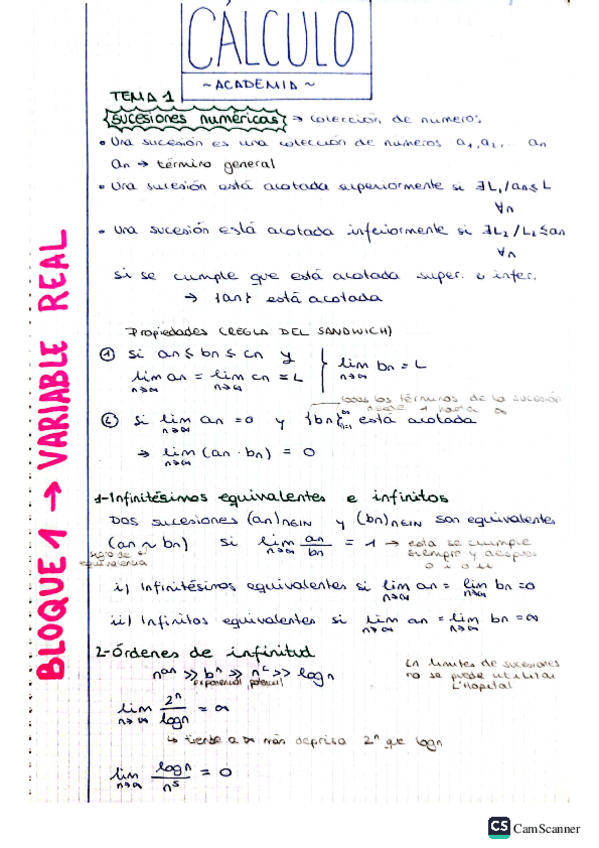 CÁLCULO
~ACADEMIA~
TEMA 1
Sucesiones numéricas → colección de números
• Una sucesión es una colección de números a₁, a₂, ... an
an → término general
• Una sucesión está acotada superiormente si ∃L₁/an≤L
∀n
• Una sucesión está acotada inferiormente si ∃L₂/L₂≤an
∀n
si se cumple que está acotada super. e infer.
→ {an} está acotada
BLOQUE 1 → VARIABLE REAL
Propiedades (REGLA DEL SANDWICH)
① Si an ≤ bn ≤ cn y
lim an = lim cn = L } lim bn = L
n→∞ n→∞ n→∞
todos los términos de la sucesión
desde 1 hasta ∞
② Si lim an = 0 y {bn}∞ᵢ₌₁ está acotada
n→∞
→ lim (an · bn) = 0
n→∞
1-Infinitésimos equivalentes e infinitos
Dos sucesiones (an)n∈ℕ y (bn)n∈ℕ son equivalentes
(an ~ bn) si lim an/bn = 1 → esta se cumple
n→∞ siempre y
signo de equivalencia
i) Infinitésimos equivalentes si lim an = lim bn = 0
n→∞ n→∞
ii) Infinitos equivalentes si lim an = lim bn = ∞
n→∞ n→∞
2-Órdenes de infinitud
nᵃⁿ >> bⁿ >> nᶜ >> log n
exponencial potencial
En limites de sucesiones
no se puede utilizar
L'Hopital
lim 2ⁿ/log n = ∞
n→∞
↳ tiende a ∞ más deprisa 2ⁿ que log n
lim log n/n⁵ = 0
n→∞
CS CamScanner